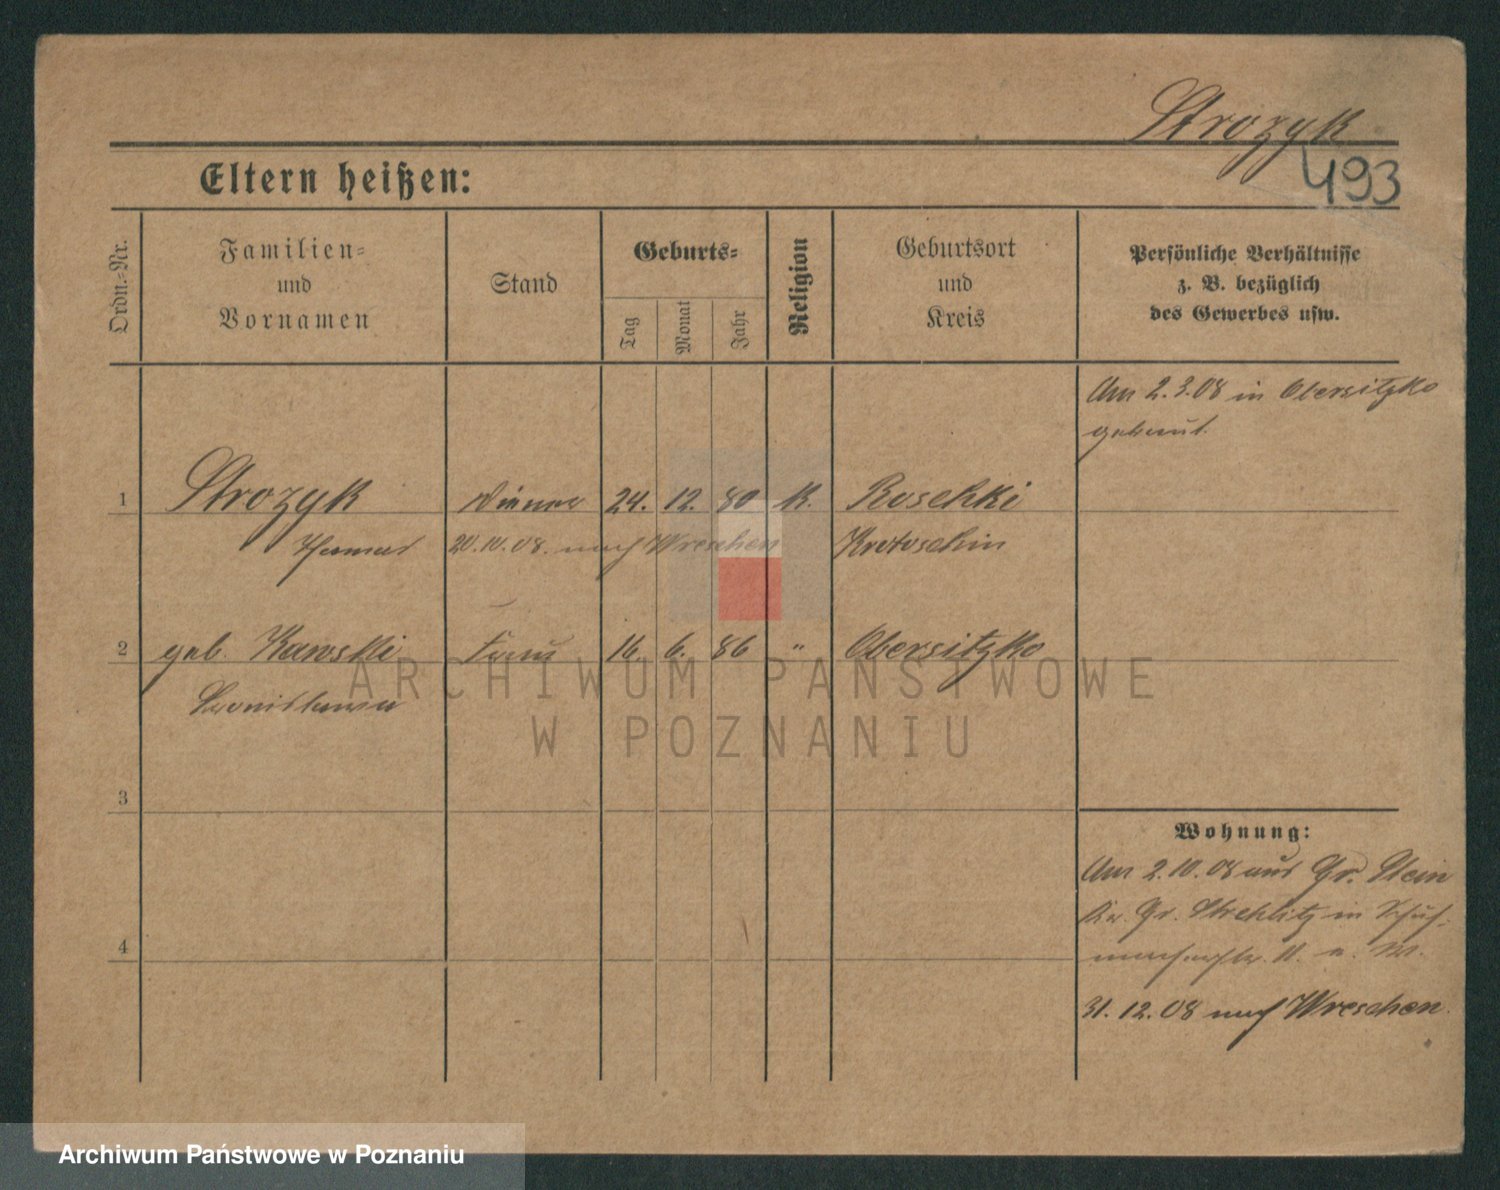 Strozyk
493
Eltern heißen:
Ordn.-Nr.
Familien-
und
Vornamen
Stand
Geburts-
Tag
Monat
Jahr
Religion
Geburtsort
und
Kreis
Persönliche Verhältnisse
z. B. bezüglich
des Gewerbes usw.
Am 2.3.08 in Obersitzko
getraut.
1 Strozyk Diener 24. 12. 80 K. Roschki
Thomas 20.10.08. nach Wreschen Krotoschin
2 geb. Kawski Frau 16. 6. 86 " Obersitzko
Bronislawa
3
Wohnung:
Am 2.10.08 aus Gr. Stein
Kr. Gr. Strehlitz in
4
31.12.08 nach Wreschen.
ARCHIWUM PAŃSTWOWE
W POZNANIU
Archiwum Państwowe w Poznaniu